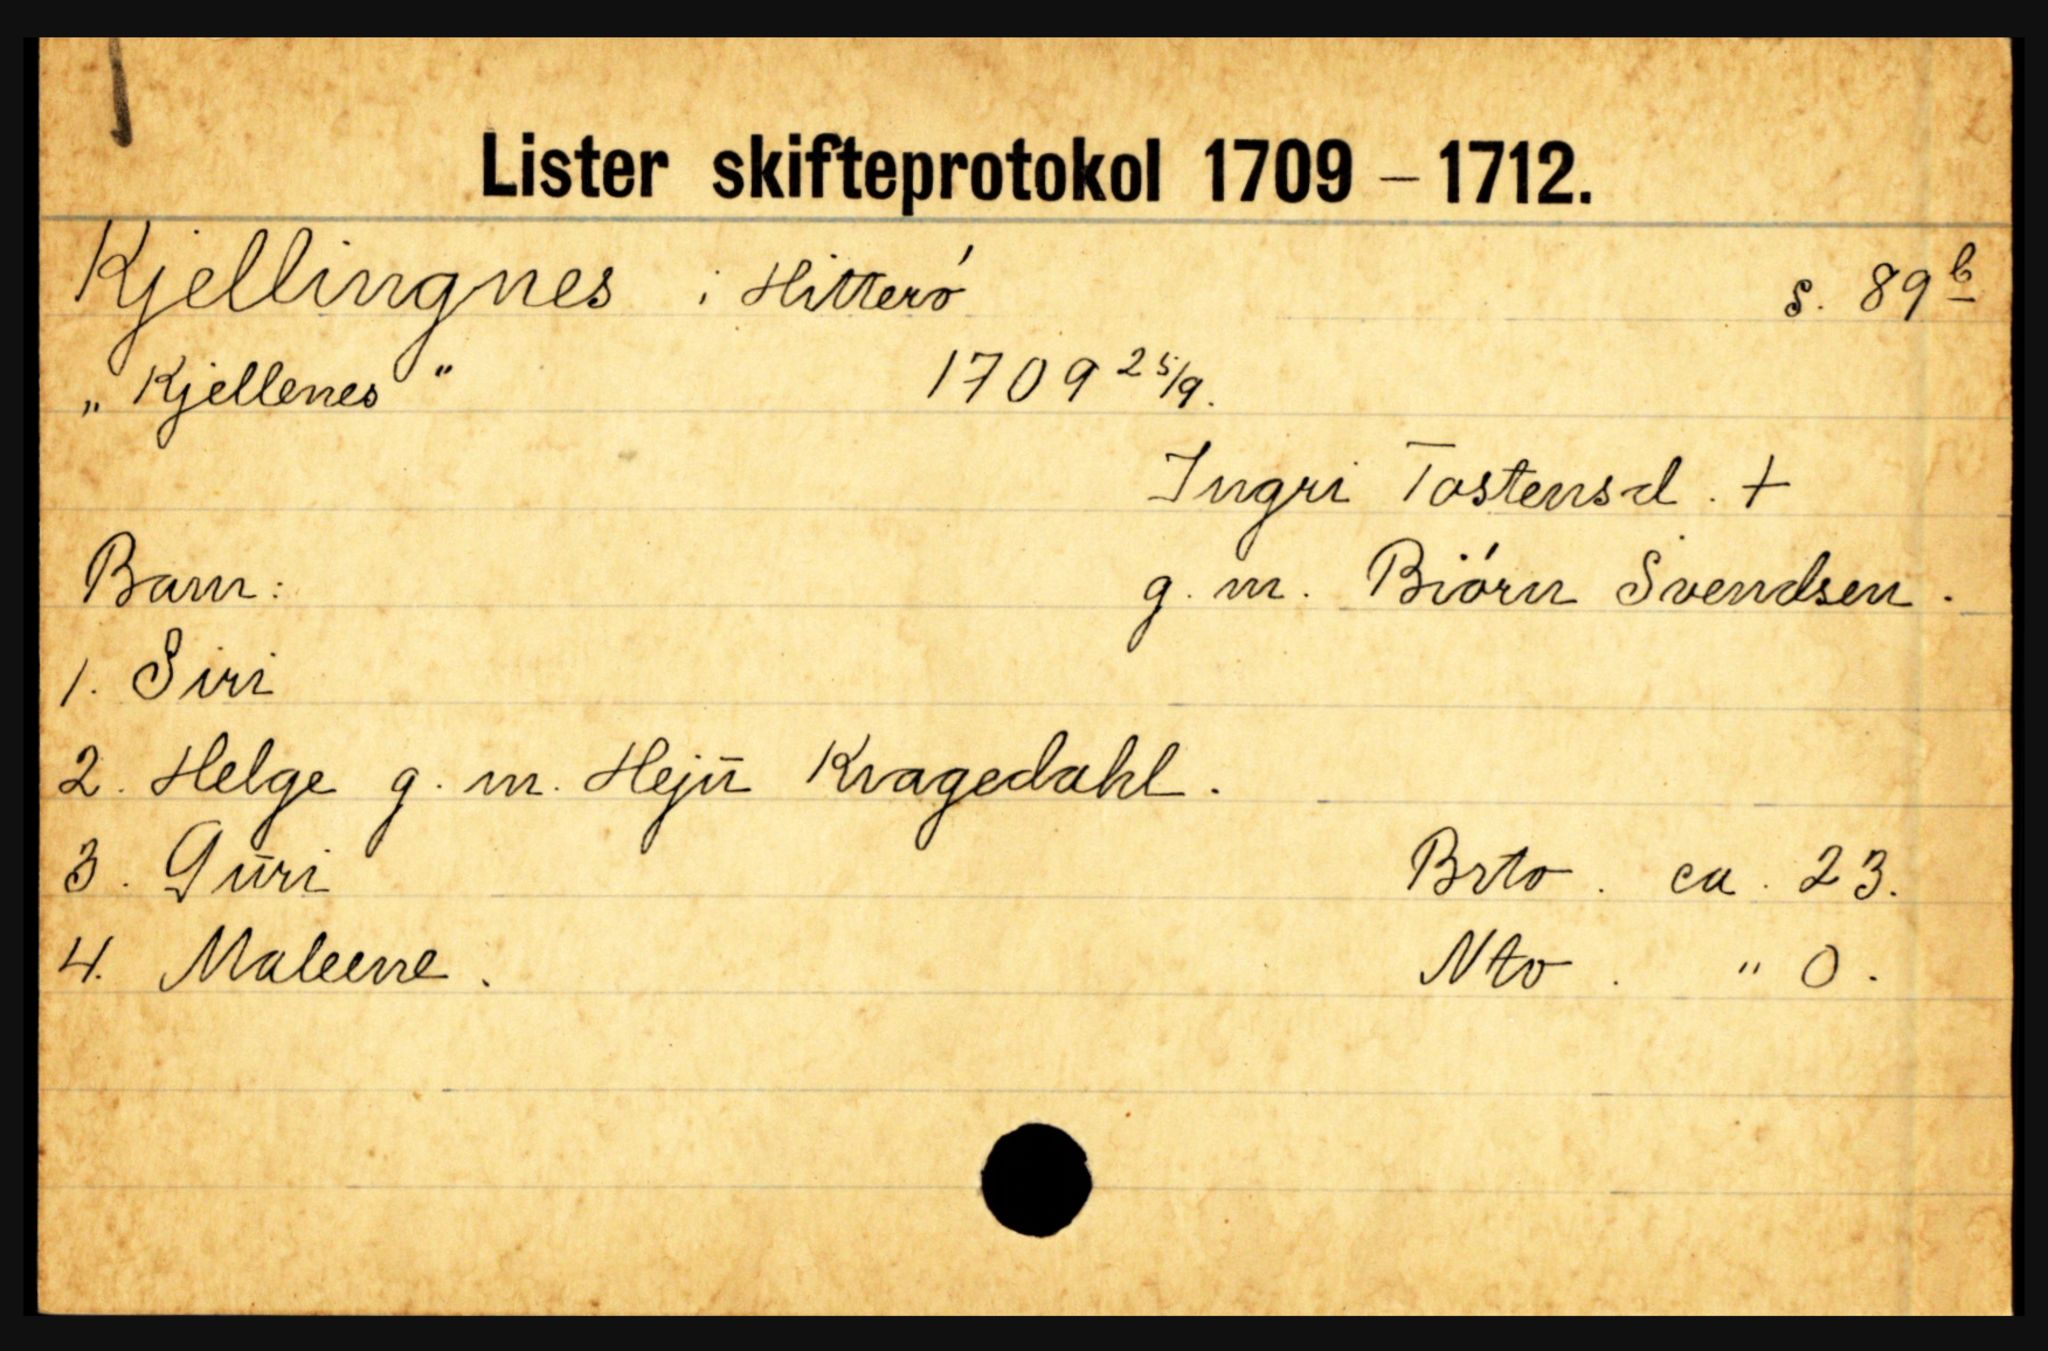 Lister skifteprotokol 1709 – 1712.
Kjellingnes i Hitterö s. 89 b
„Kjellenes" 1709 25/9.
Ingri Tostensd. +
Barn: g. m. Biörn Svendsen.
1. Siri
2. Helge g. m. Hejū Kragedahl.
3. Gūri Brto. ca. 23.
4. Maleene. Nto. " 0.